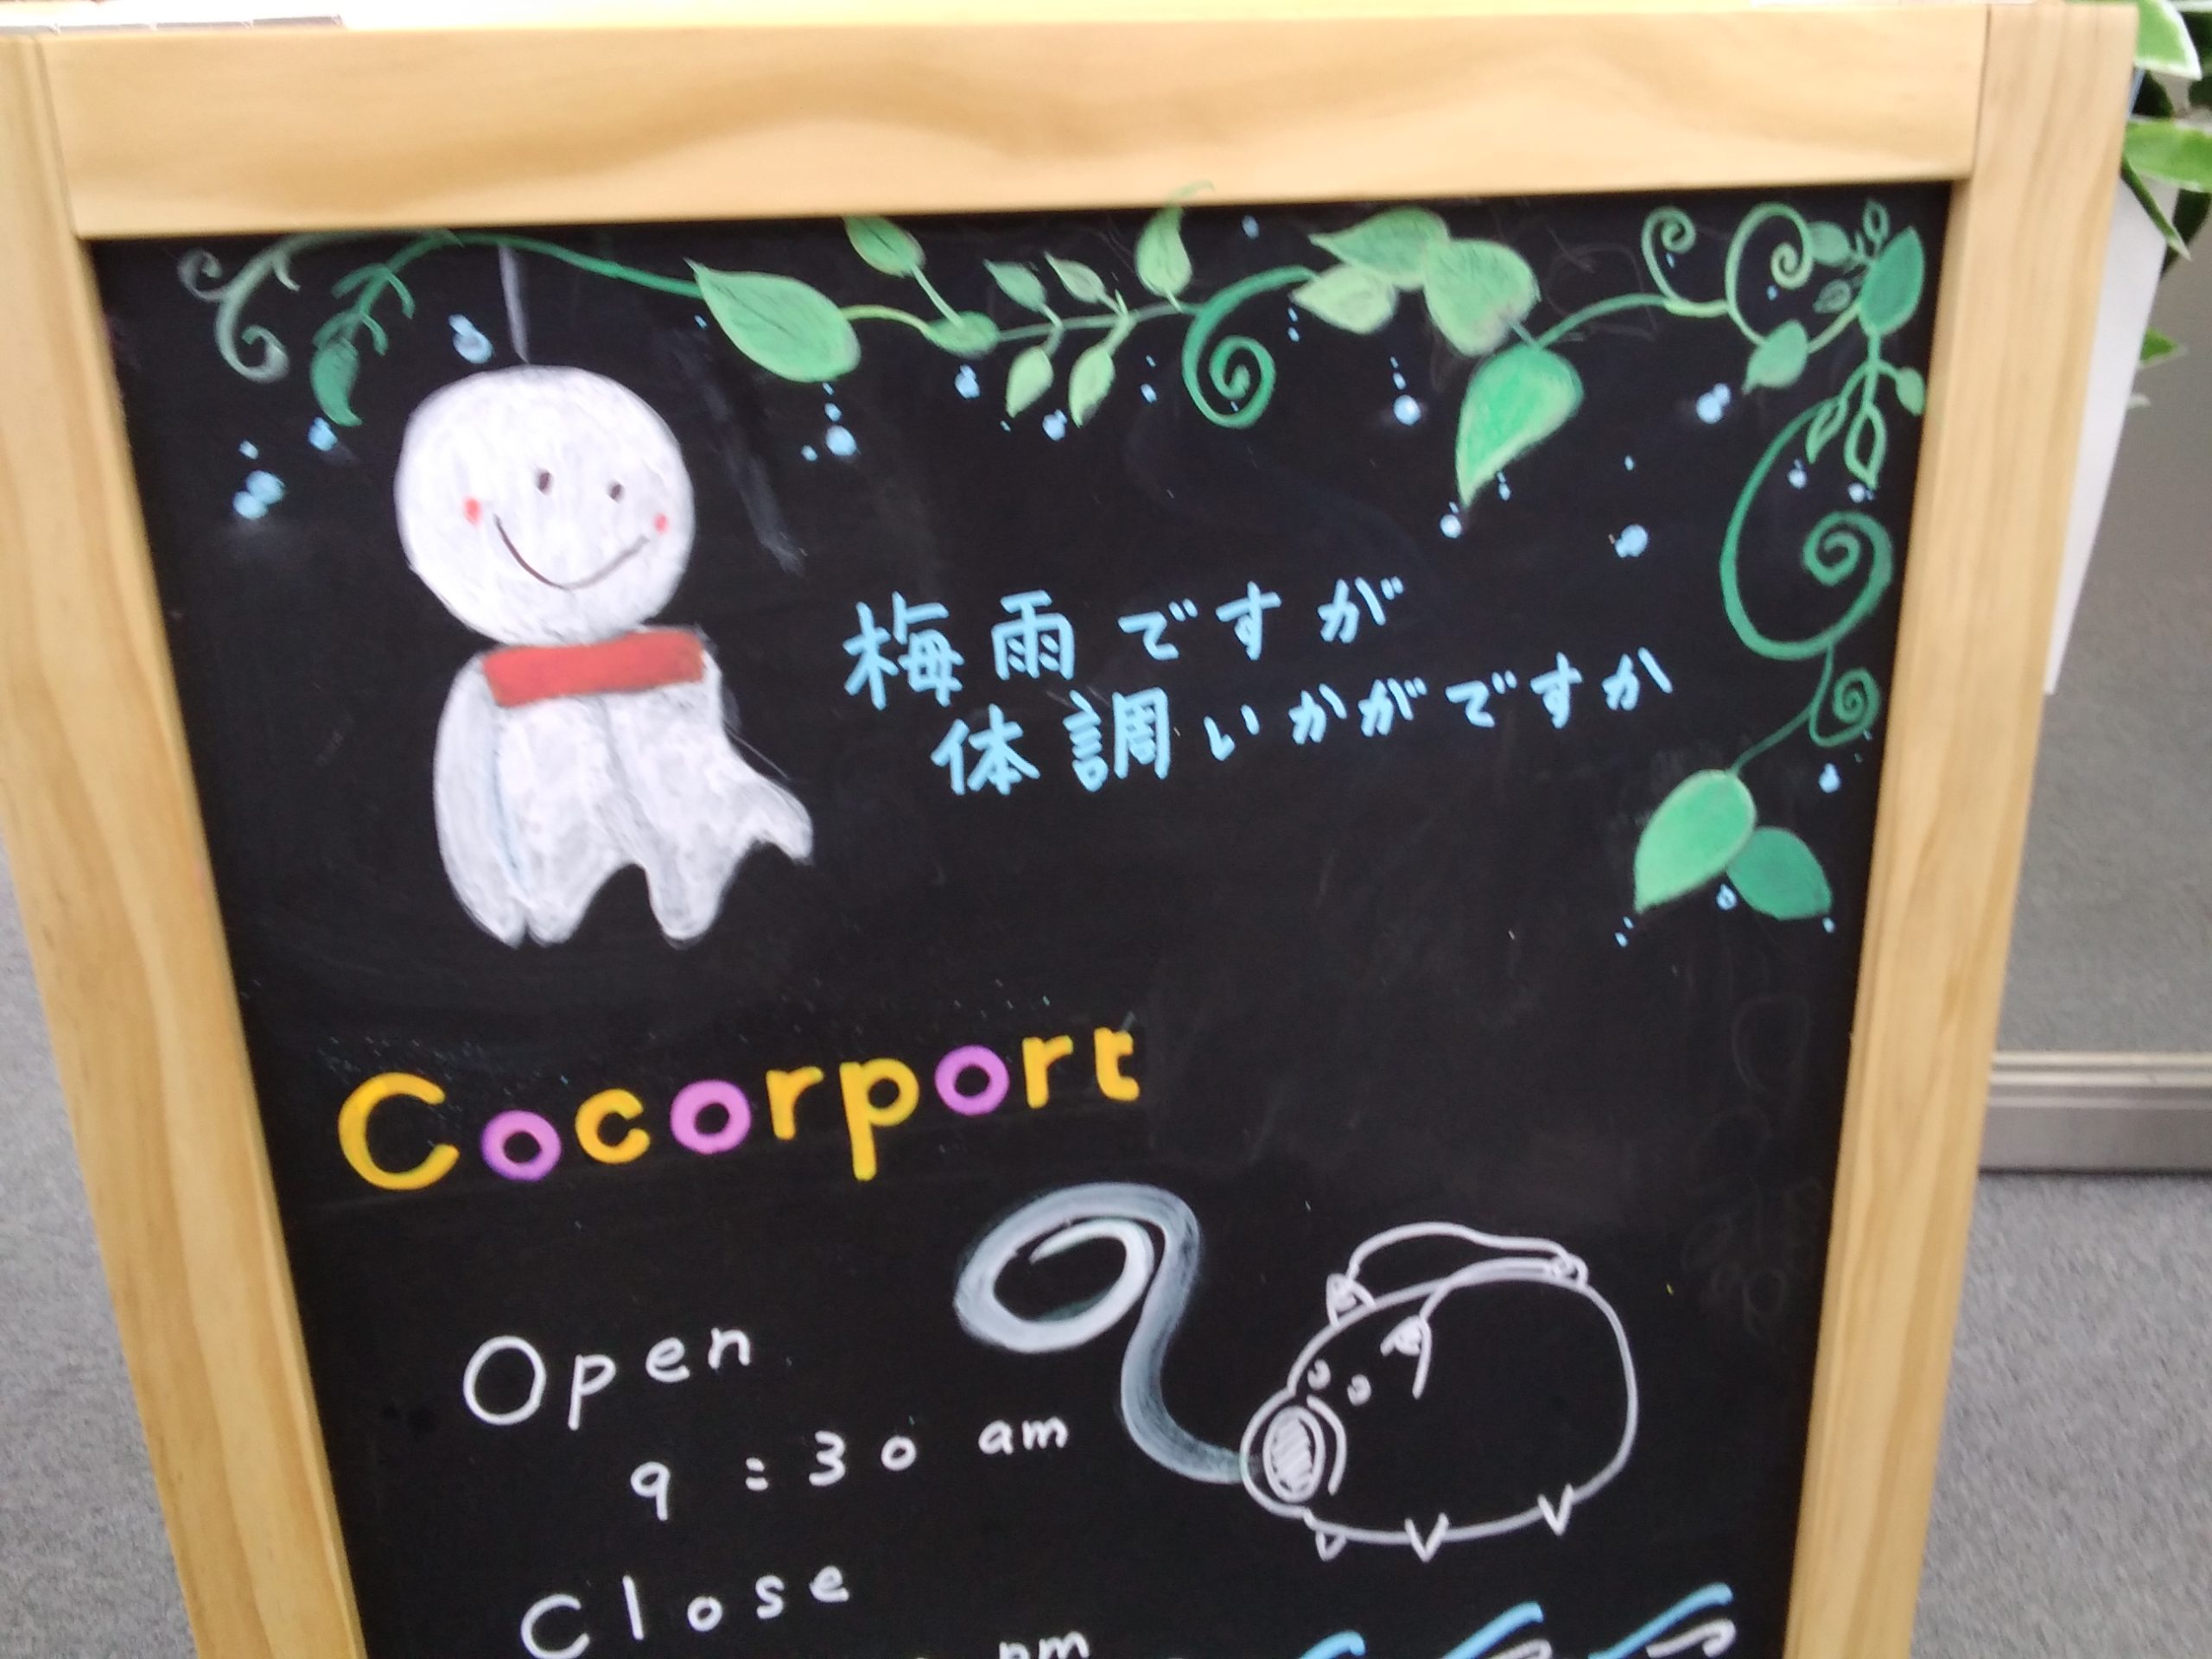 梅雨ですが
体調いかがですか
Cocorport
Open
9:30 am
Close
pm